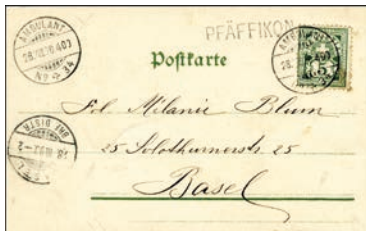 AMBULANT
Nº 34
PFÄFFIKON
Postkarte
Frl. Milanie Blum
25 Solothurnerstr. 25
Basel